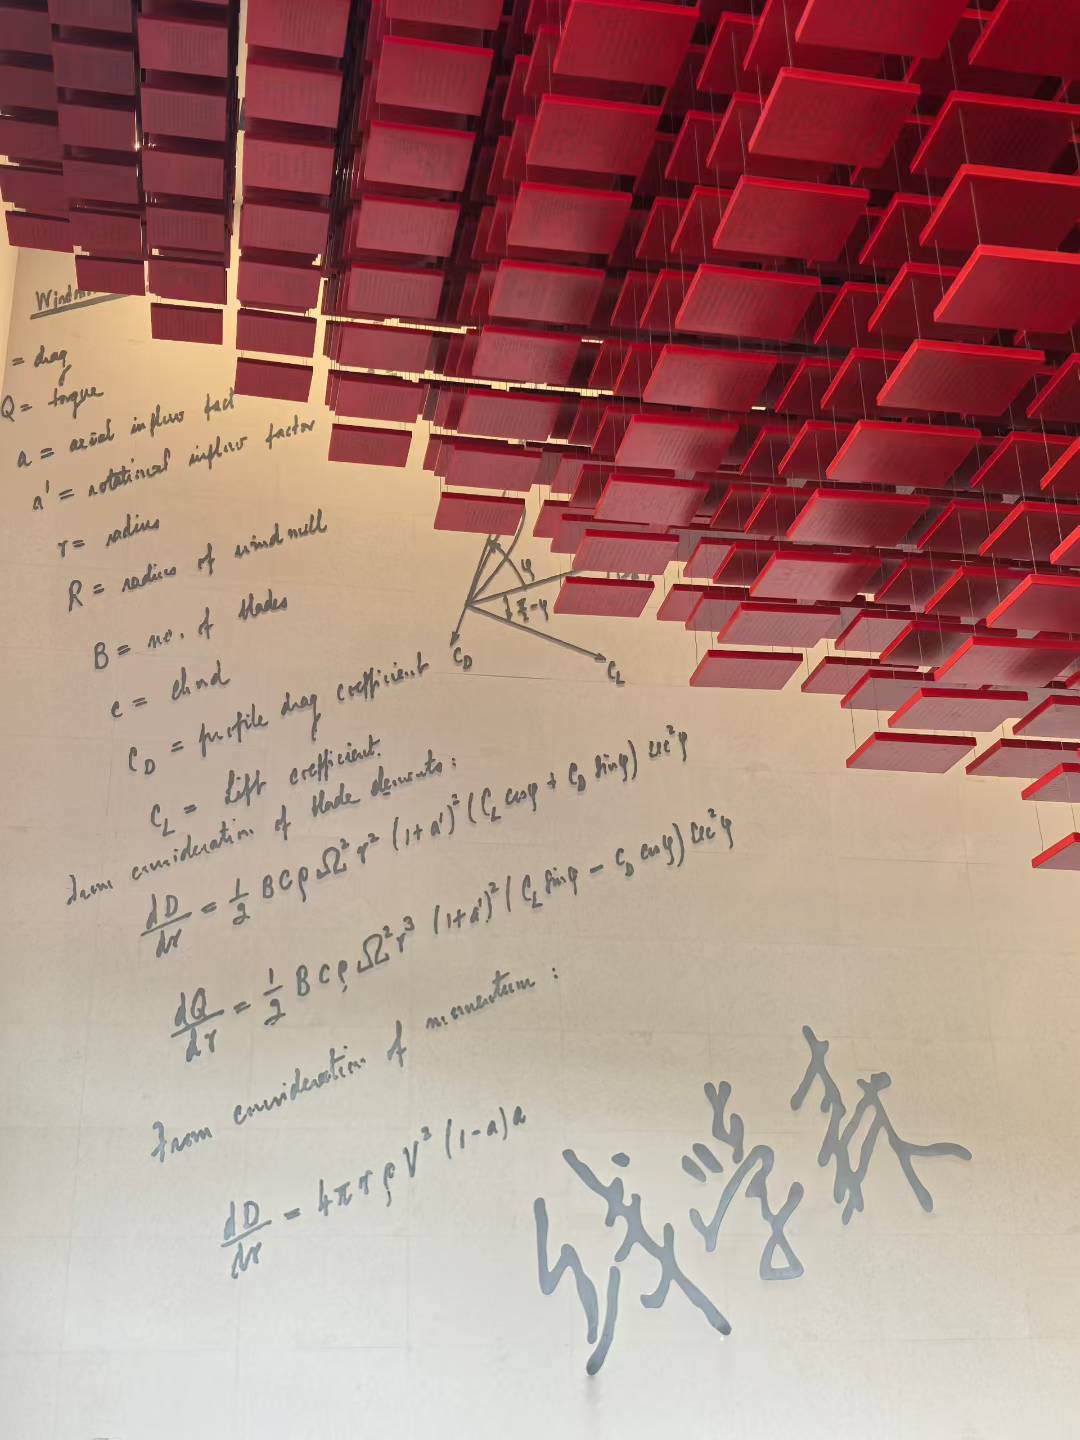 = drag
Q = torque
a = axial inflow fact
a' = rotational inflow factor
r = radius
R = radius of windmill
B = no. of blades
c = chord
C_D = profile drag coefficient
C_L = Lift coefficient.
φ
π/2 - φ
C_D
C_L
From consideration of blade elements:
dD/dr = 1/2 B C ρ Ω² r² (1+a')² (C_L cosφ + C_D sinφ) sec²φ
dQ/dr = 1/2 B C ρ Ω² r³ (1+a')² (C_L sinφ - C_D cosφ) sec²φ
From consideration of momentum:
dD/dr = 4π r ρ V² (1-a)a
钱学森